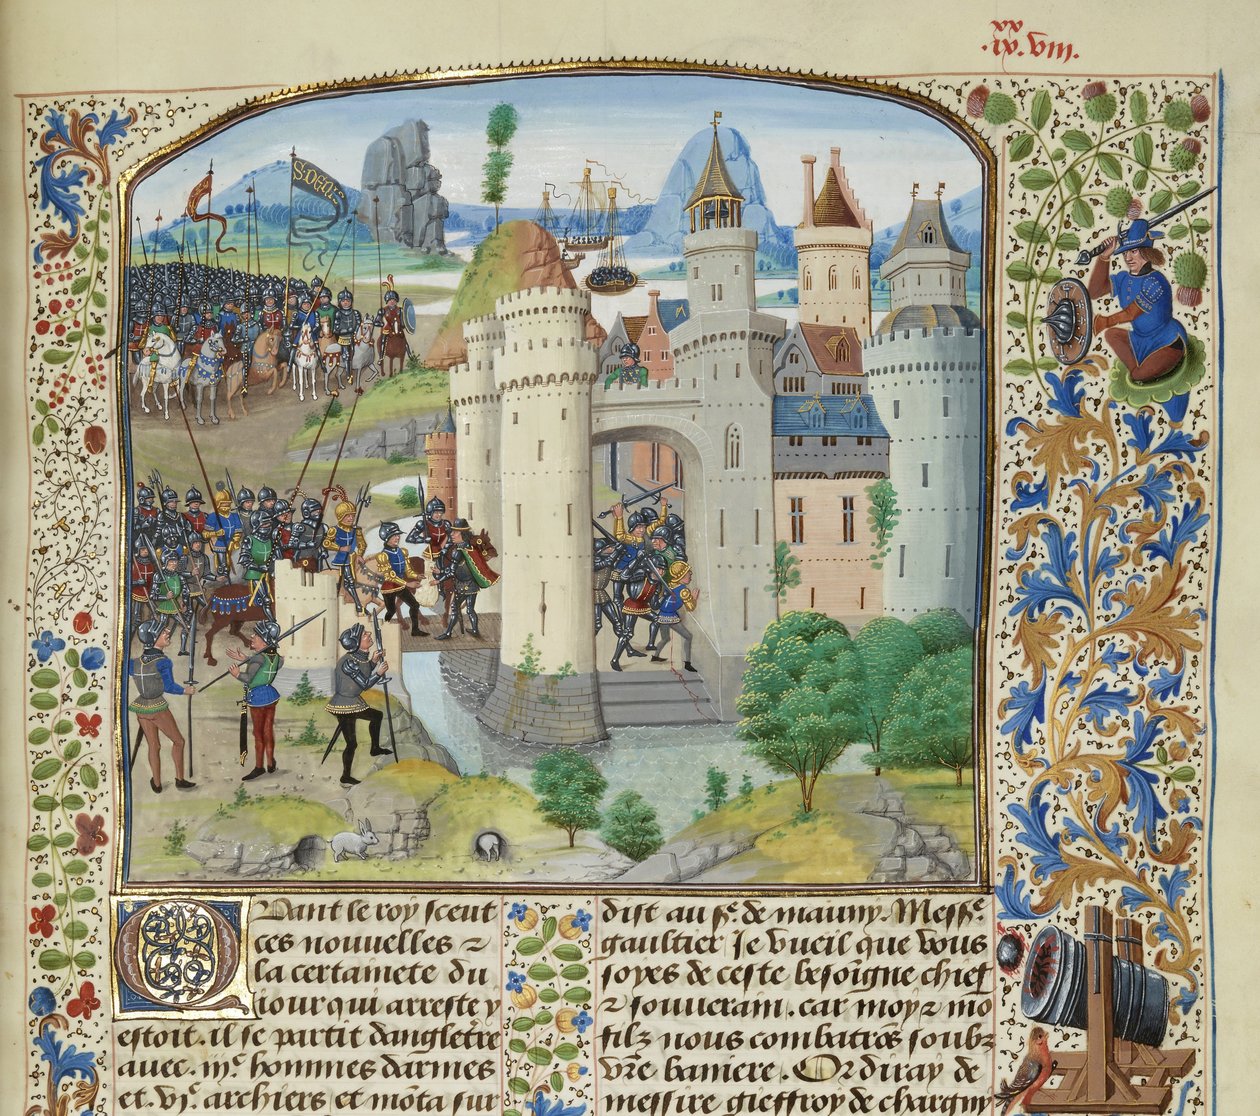 xx
.iv. viii.
S. DGOR
Quant le roy sceut
ces nouuelles ⁊
la certainete du
iour qui arreste y
estoit. il se partit dangletr̃e
auec. iijᶜ. hommes darmes
et. vjᶜ. archiers et mõta sur
dist au sʳ. de mauny. Messʳ.
gaultier je vueil que vous
soyes de ceste besoĩgne chief
⁊ souuerain. car moy ⁊ mõ
filz nous combatrõs soubz
vr̃e baniere. Or diray de
messire gieffroy de chargny